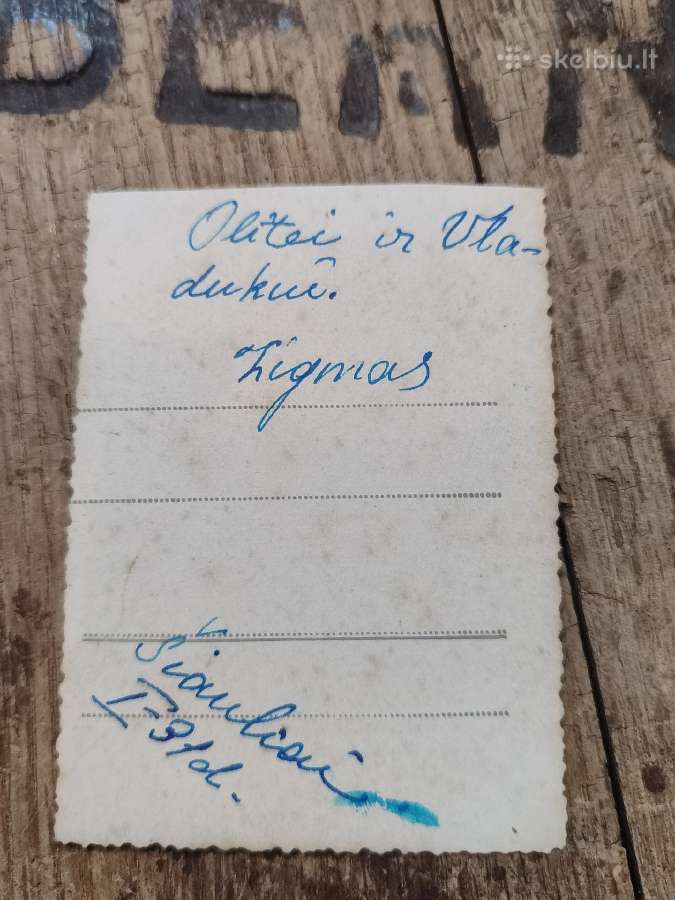 skelbiu.lt
Olitei ir Vla-
dukui.
Zigmas
Šiauliai
I-31d.